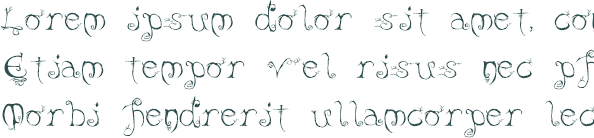 Lorem ipsum dolor sit amet, co
Etiam tempor vel risus nec p
Morbi hendrerit ullamcorper lec